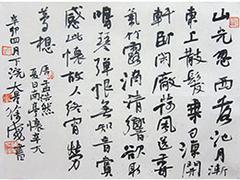 山光忽西落池月漸
東上散髮乘夕涼開
軒臥閑敞荷風送香
氣竹露滴清響欲取
鳴琴彈恨無知音賞
感此懷故人終宵勞
夢想 唐孟浩然
夏日南亭懷辛大
辛卯四月下浣
書